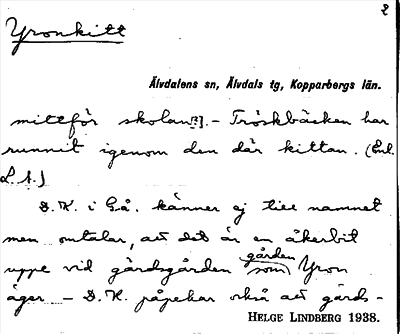 2
Yronkitt
Älvdalens sn, Älvdals tg, Kopparbergs län.
mittför skolan[?]. - Tröskbäcken har
runnit igenom den där kittan. (Enl.
L.A.)
D.K. i Gå. känner ej till namnet
men omtalar, att det är en åkerbit
gården
uppe vid gårdsgården som Yron
äger - D.K. påpekar också att gårds-
HELGE LINDBERG 1938.